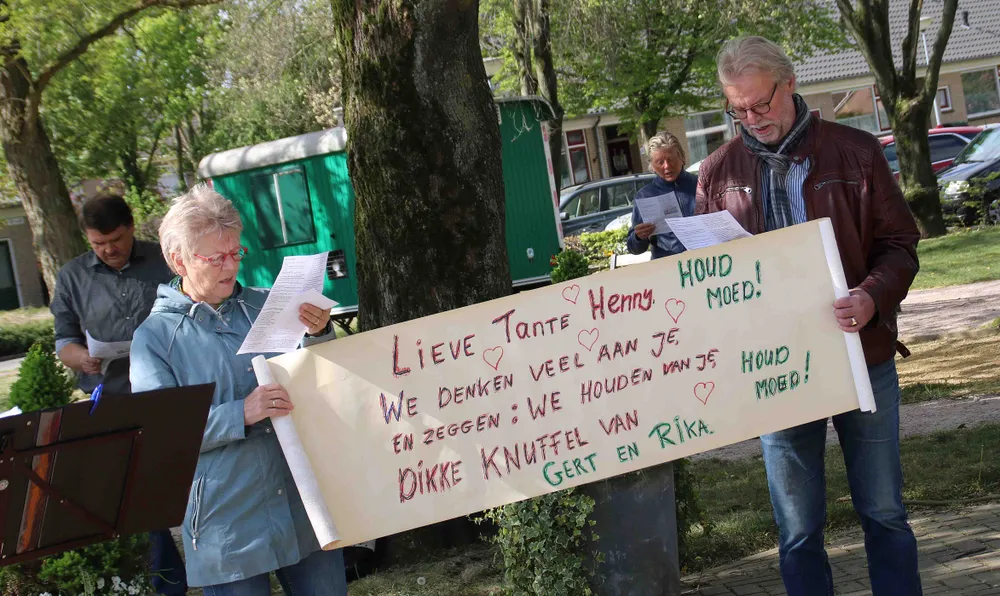 Lieve Tante Henny.
We denken veel aan je,
en zeggen: we houden van je,
Dikke knuffel van
Gert en Rika.
Houd
moed!
Houd
moed!